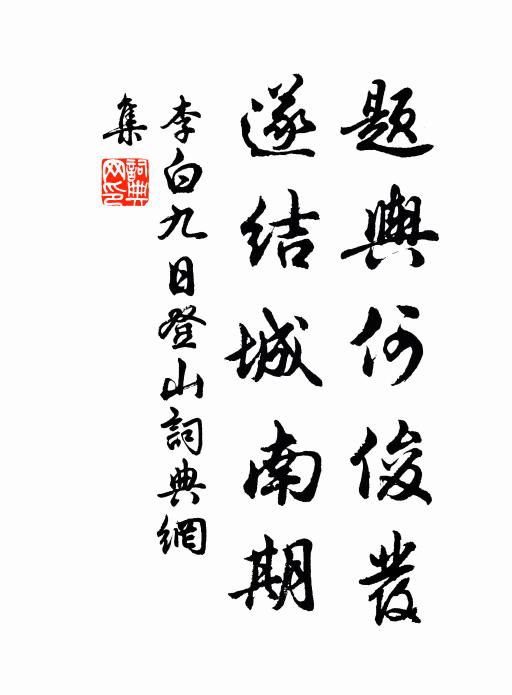 題輿何俊發
遂結城南期
李白九日登山詞典網
集
詞典
网印